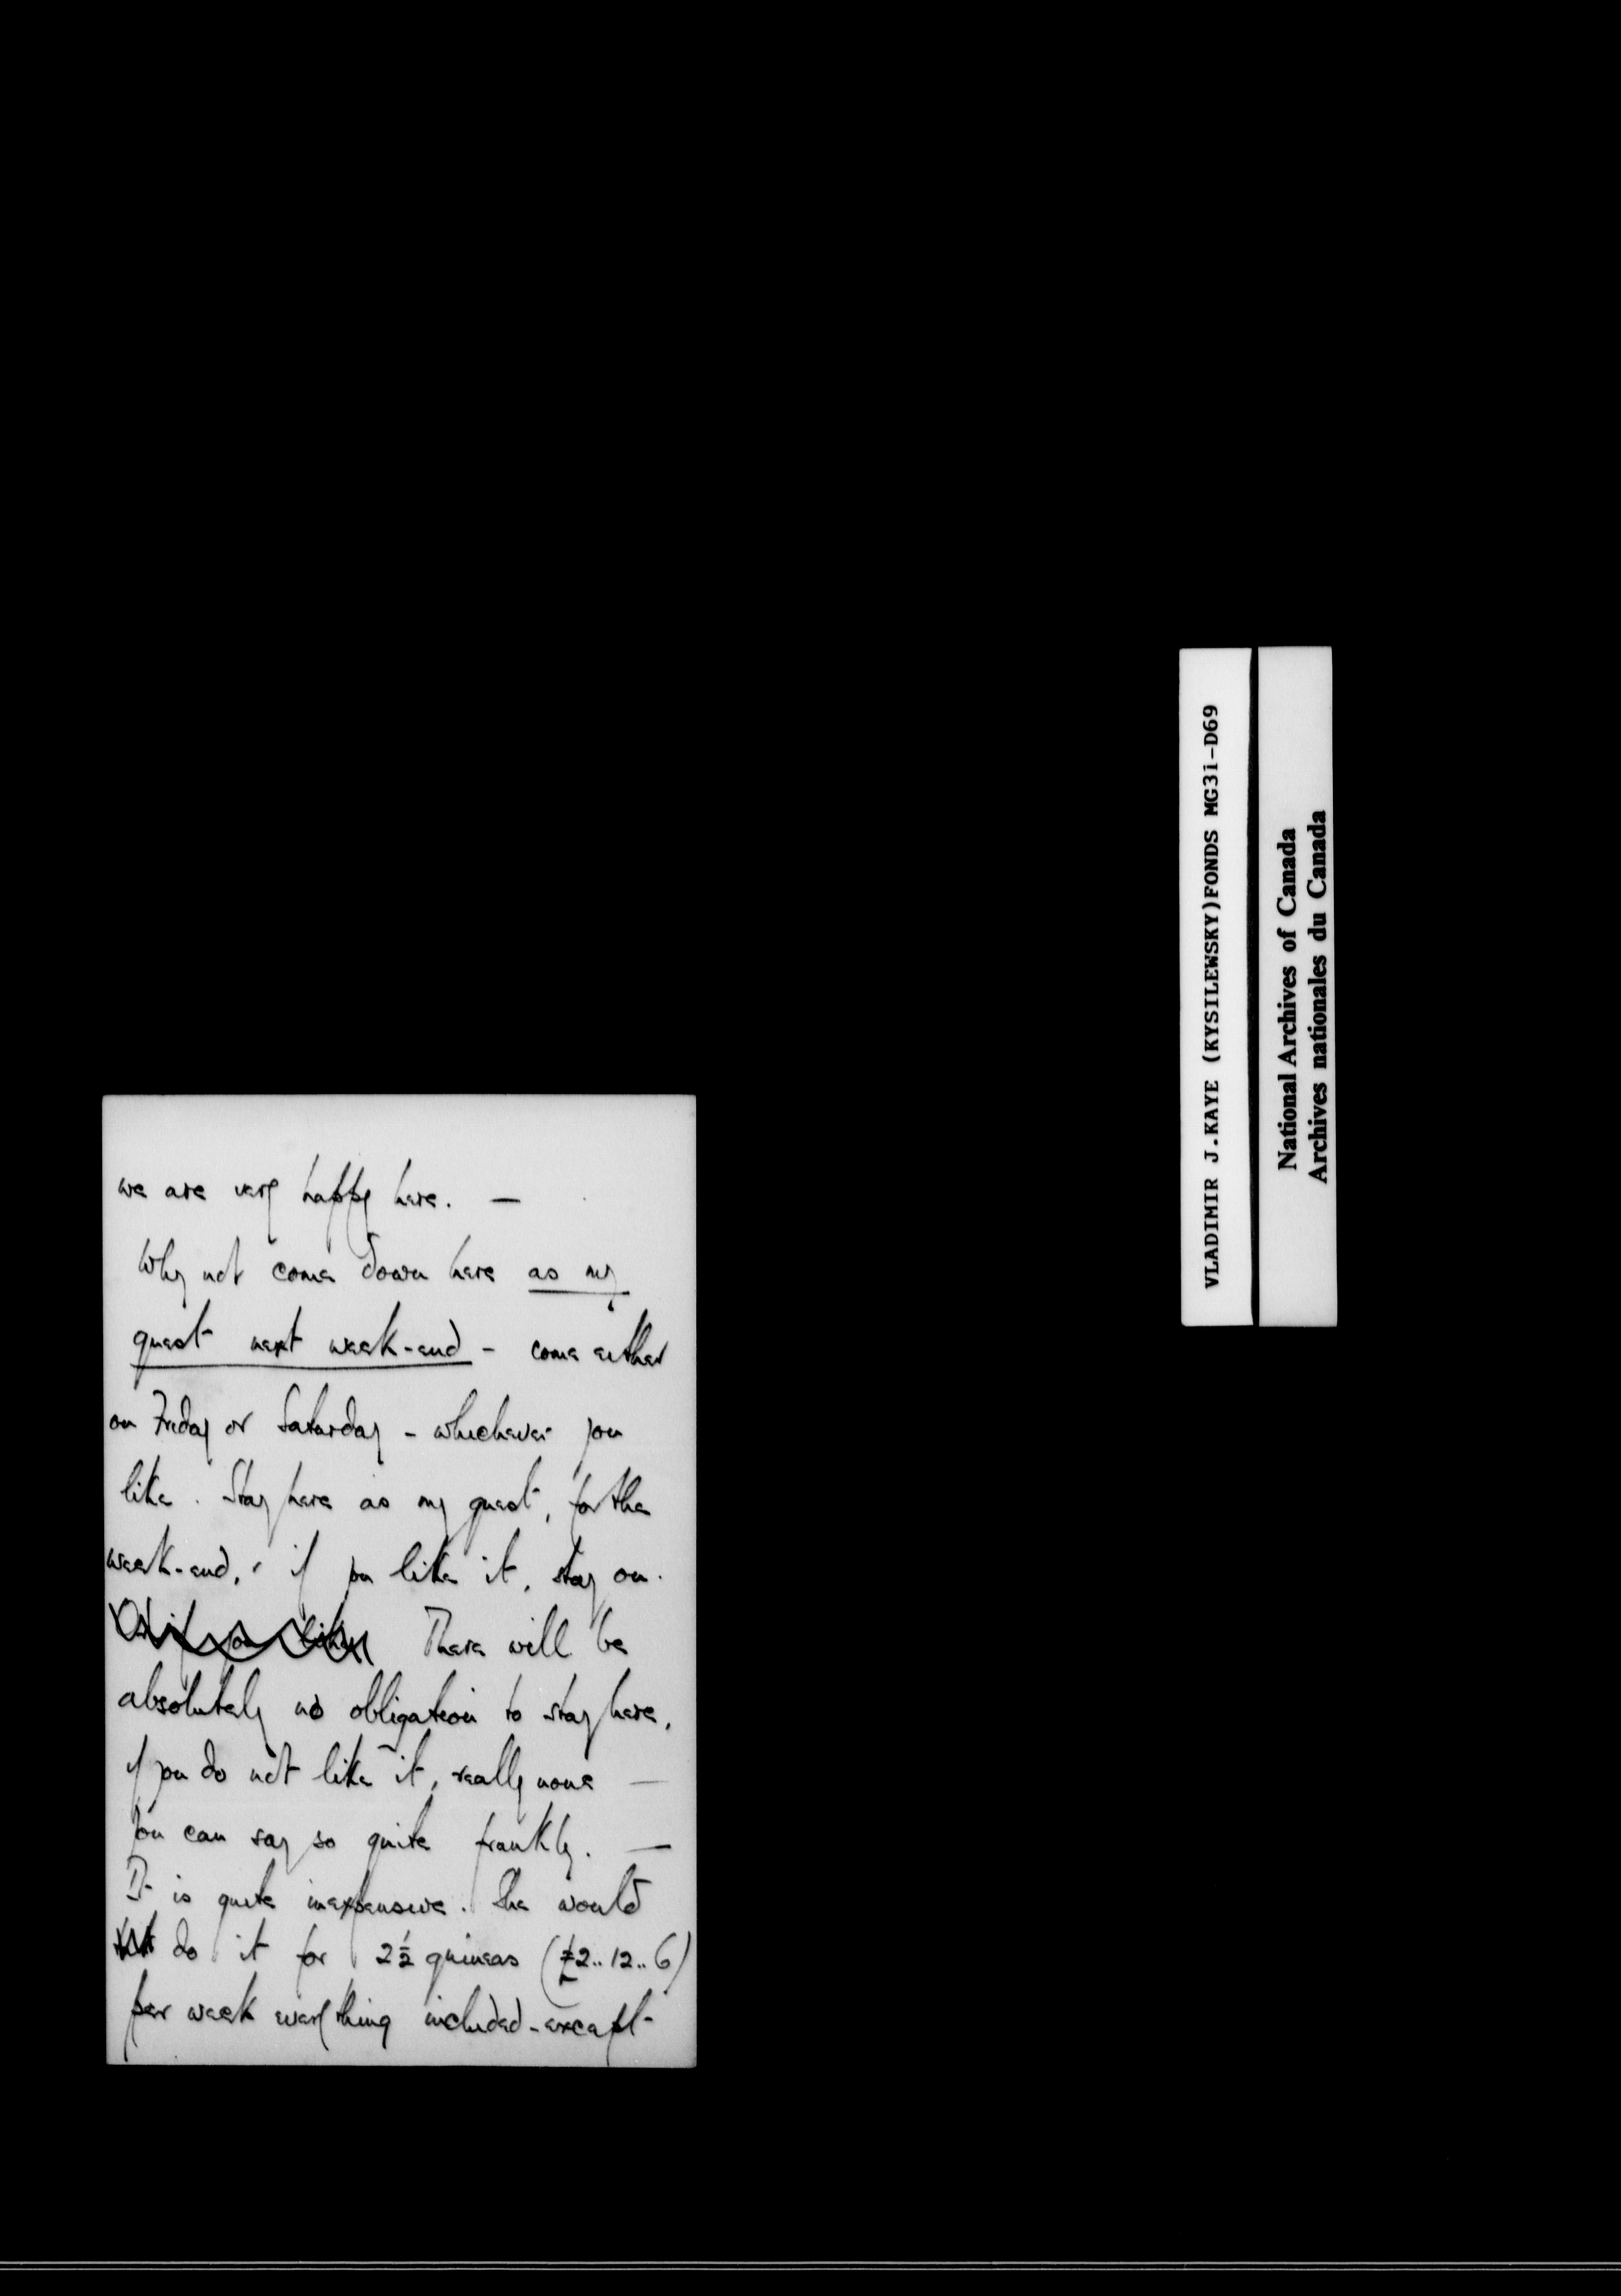 we are very happy here. —
Why not come down here as my
guest next week-end - come either
on Friday or Saturday - whichever you
like. Stay here as my guest, for the
week-end, & if you like it, stay on.
Or if you like There will be
absolutely no obligation to stay here,
if you do not like it, really none —
You can say so quite frankly. —
It is quite inexpensive. She would
do it for 2½ guineas (£2..12..6)
per week everything included - except
VLADIMIR J.KAYE (KYSILEWSKY)FONDS MG31-D69
National Archives of Canada
Archives nationales du Canada